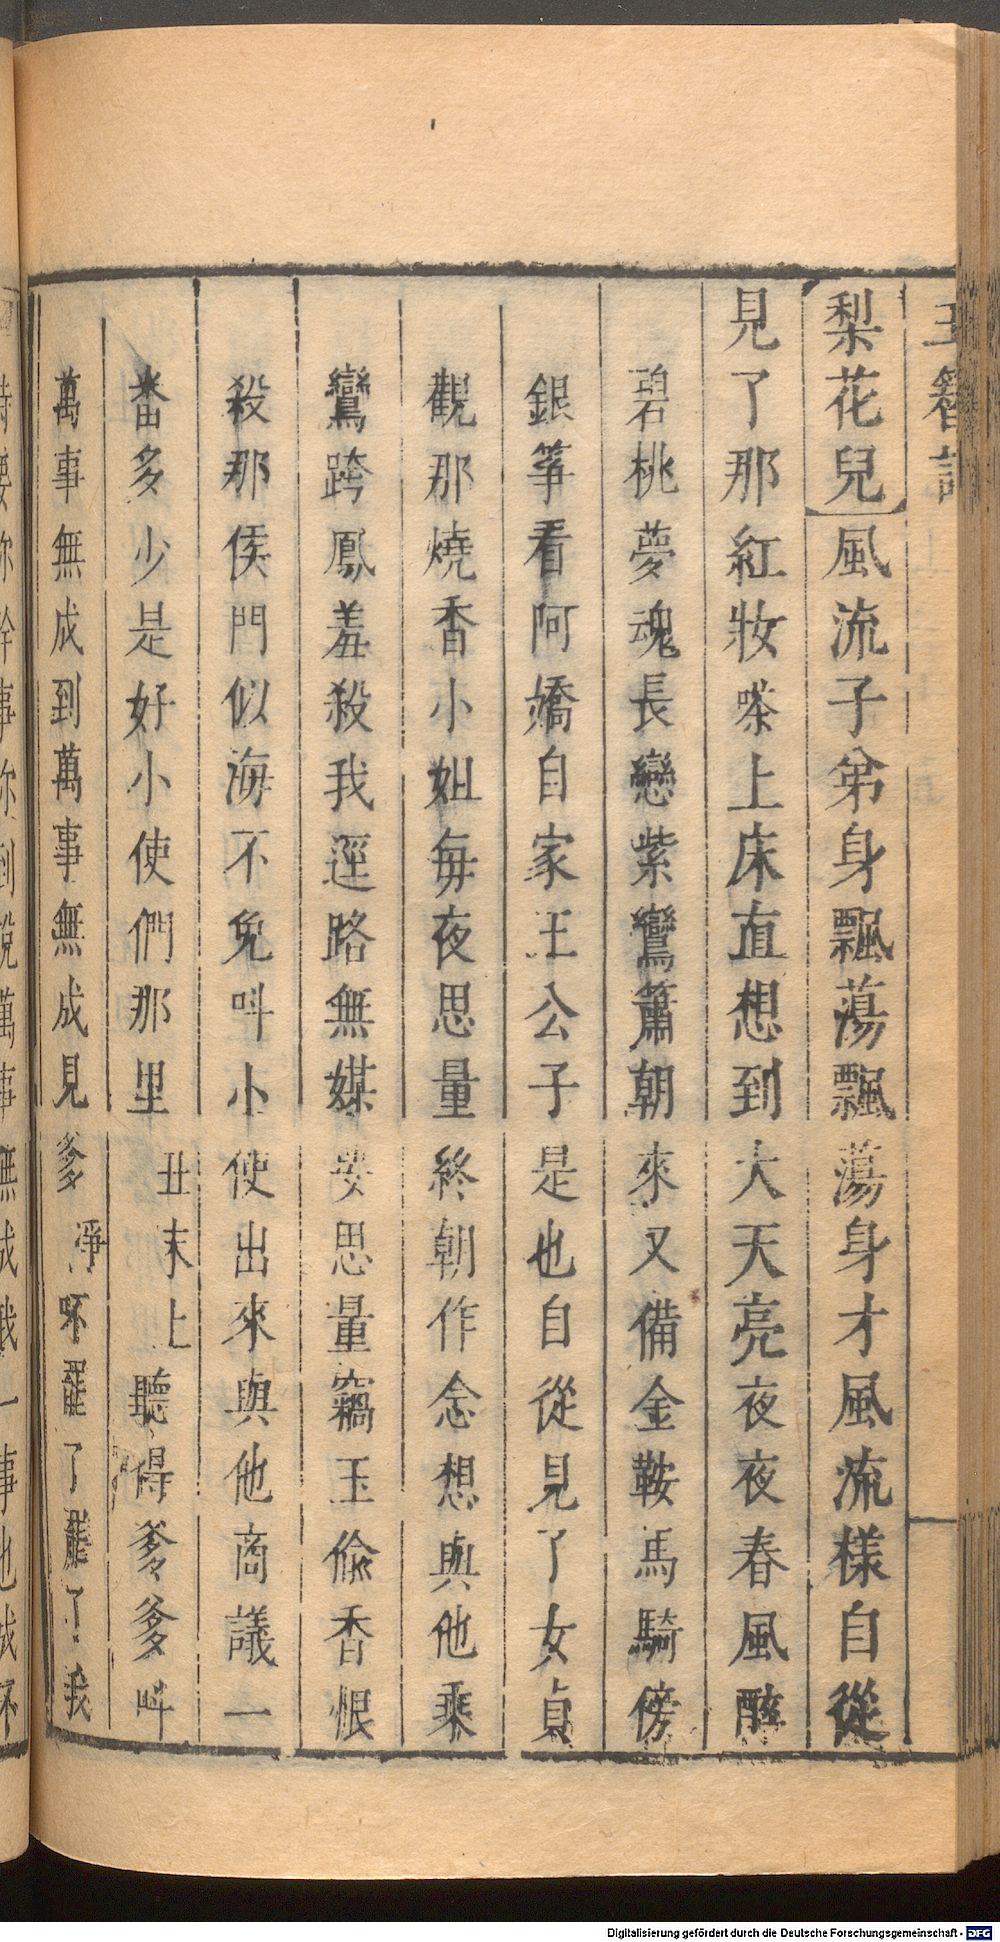 玉簪記
梨花兒風流子弟身飄蕩飄蕩身才風流樣自從
見了那紅妝嗏上床直想到大天亮夜夜春風醉
碧桃夢魂長戀紫鸞簫朝來又備金鞍馬騎傍
銀箏看阿嬌自家王公子是也自從見了女貞
觀那燒香小姐每夜思量終朝作念想與他乘
鸞跨鳳羞殺我逕路無媒妄思量竊玉偷香恨
殺那侯門似海不免叫小使出來與他商議一
畨多少是好小使們那里丑末上聽得爹爹叫
萬事無成到萬事無成見爹淨呸罷了罷了我
Digitalisierung gefördert durch die Deutsche Forschungsgemeinschaft - DFG